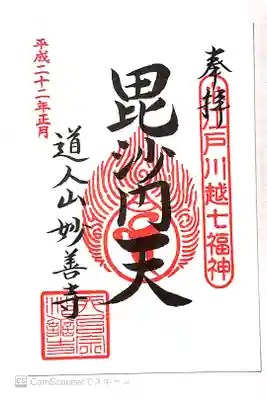 奉拝
小江戸川越七福神
毘沙門天
道人山妙善寺
平成二十二年正月
CamScannerでスキャン